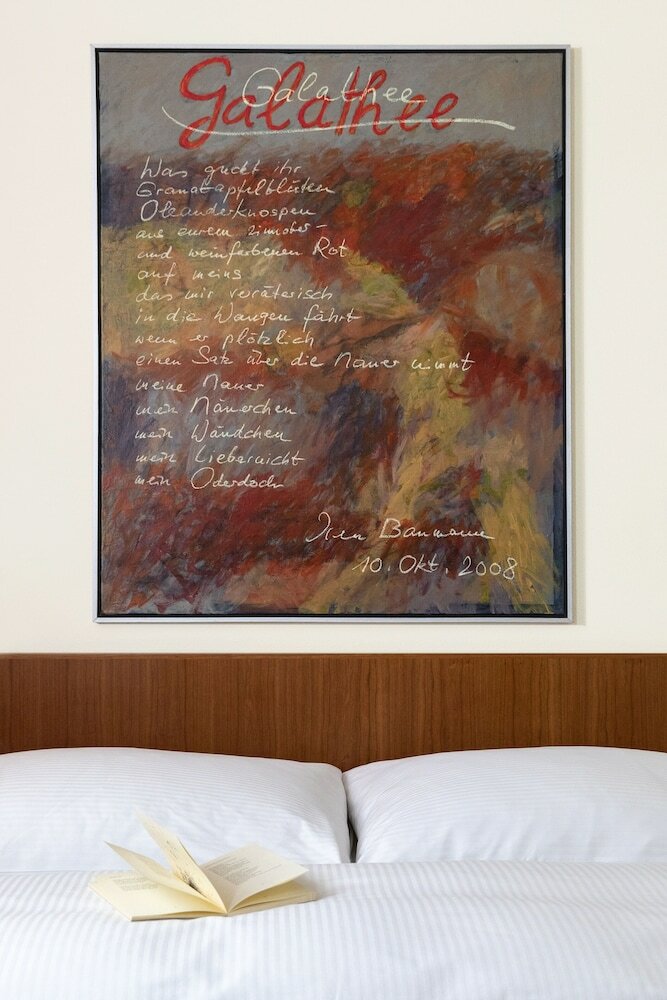 Galathee
Galathee
Was guckt ihr
Granatapfelblüten
Oleanderknospen
aus eurem zinnober-
und weinfarbenen Rot
auf meins
das mir veräterisch
in die Wangen fährt
wenn er plötzlich
einen Satz über die Mauer nimmt
meine Mauer
mein Mäuerchen
mein Wändchen
mein Liebernicht
mein Oderdoch
Baumann
10. Okt. 2008